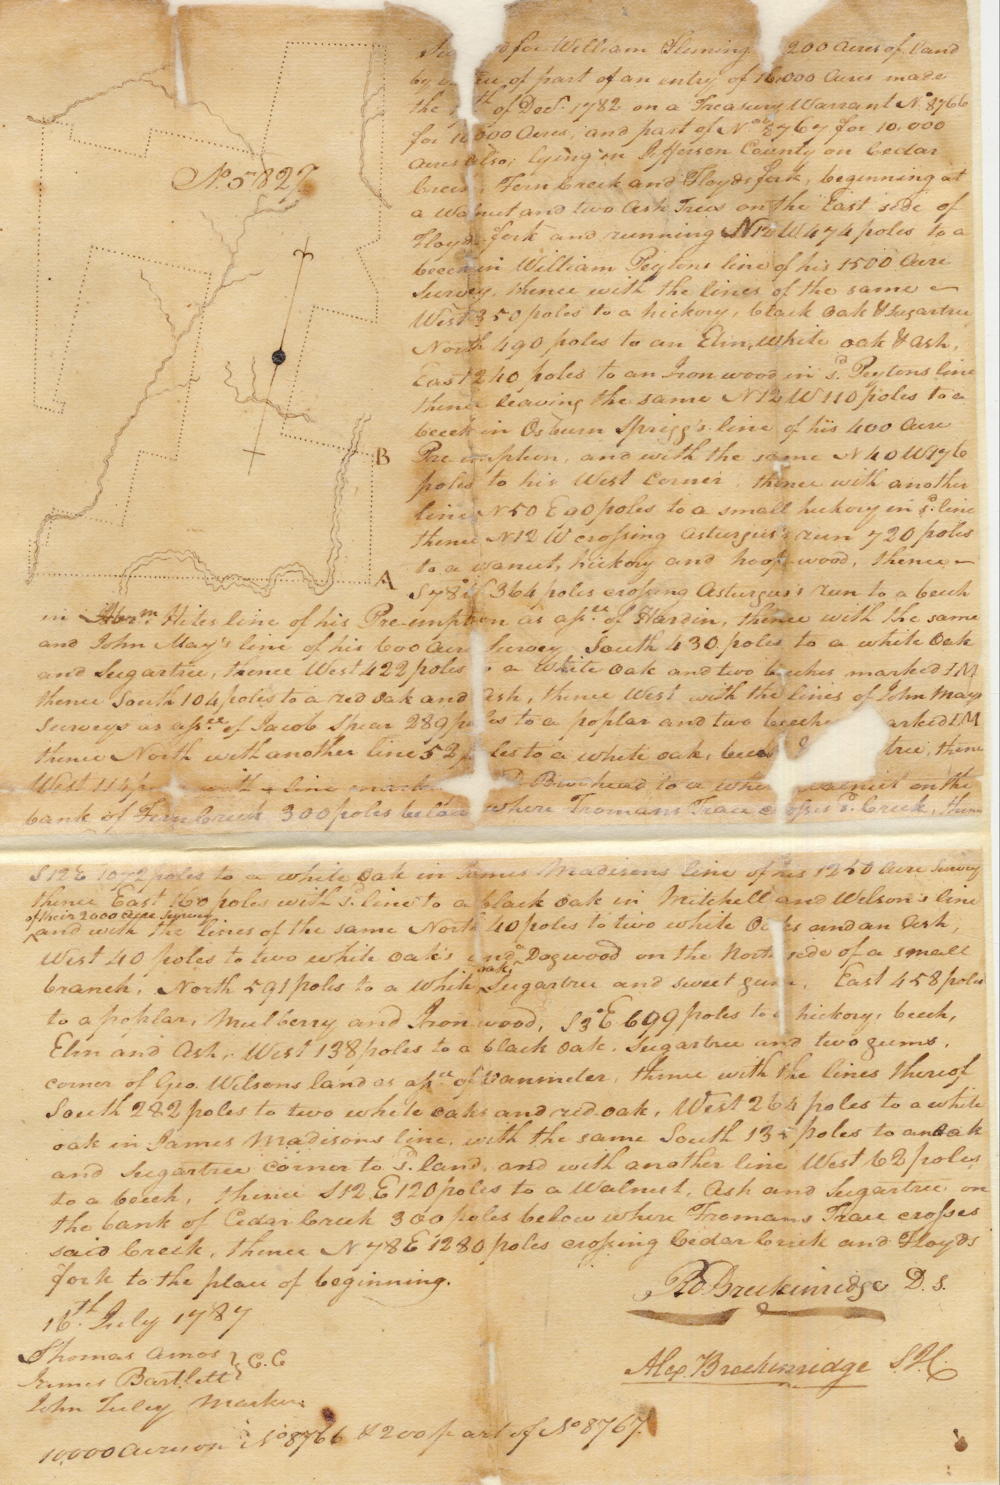 No. 5827
B
A
for William Fleming 200 Acres of Land
by of part of an entry of 16,000 Acres made
the th of Decr. 1782 on a Treasury Warrant No. 8766
for 10,000 Acres, and part of No. 8767 for 10,000
Acres also, lying in Jefferson County on Cedar
Creek, Fern Creek and Floyds fork, beginning at
a Walnut and two Ash Trees on the East side of
Floyds fork and running N 12 W 474 poles to a
beech in William Peytons line of his 1500 Acre
Survey, thence with the lines of the same
West 350 poles to a hickory, black oak & Sugartree
North 490 poles to an Elm, white oak & ash,
East 240 poles to an Ironwood in sd. Peytons line
thence leaving the same N 12 W 110 poles to a
beech in Osburn Sprigg's line of his 400 Acre
Pre-emption, and with the same N 40 W 176
poles to his West Corner, thence with another
line N 50 E 90 poles to a small hickory in sd. line
thence N 12 W crossing Asturgus's run 720 poles
to a walnut, hickory and hoopwood, thence
S 78 W 364 poles crossing Asturgus's run to a beech
in Abrm. Hites line of his Pre-emption as assee. of Hardin, thence with the same
and John May's line of his 600 Acre Survey South 430 poles to a white Oak
and Sugartree, thence West 422 poles to a White Oak and two beeches marked IM
thence South 104 poles to a red oak and Ash, thence West with the lines of John Mays
Surveys as assee. of Jacob Spear 289 poles to a poplar and two beeches marked IM
thence North with another line 52 poles to a white oak, beech tree, thence
West 114 with a line Buckhead to a walnut on the
bank of Fern Creek 300 poles below where Fromans Trace crosses sd. Creek, thence
S 12 E 1072 poles to a white Oak in James Madisons line of his 1250 Acre Survey
thence East 160 poles with sd. line to a black oak in Mitchell and Wilson's line
of their 2000 Acre Survey
and with the lines of the same North 40 poles to two white Oaks and an Ash,
West 40 poles to two white oak's and Dogwood on the North side of a small
branch, North 591 poles to a white oak, Sugartree and sweet gum, East 458 poles
to a poplar, Mulberry and Ironwood, S 3° E 699 poles to a hickory, beech,
Elm and Ash, West 138 poles to a black Oak, Sugartree and two gums,
corner of Geo. Wilsons land as assee. of Vanmeter, thence with the lines thereof
South 282 poles to two white oaks and red oak, West 264 poles to a white
oak in James Madisons line, with the same South 135 poles to an oak
and Sugartree corner to sd. land, and with another line West 62 poles
to a beech, thence S 12 E 120 poles to a Walnut, Ash and Sugartree on
the bank of Cedar Creek 300 poles below where Fromans Trace crosses
said Creek, thence N 78 E 1280 poles crossing Cedar Creek and Floyds
fork to the place of beginning.
Ro. Breckinridge D.S.
16th. July 1787
Thomas Amos
James Bartlett } C.C
John Tuley Marker
Alex. Breckinridge S.J.C.
10,000 Acres on No. 8766 & 200 part of No. 8767.